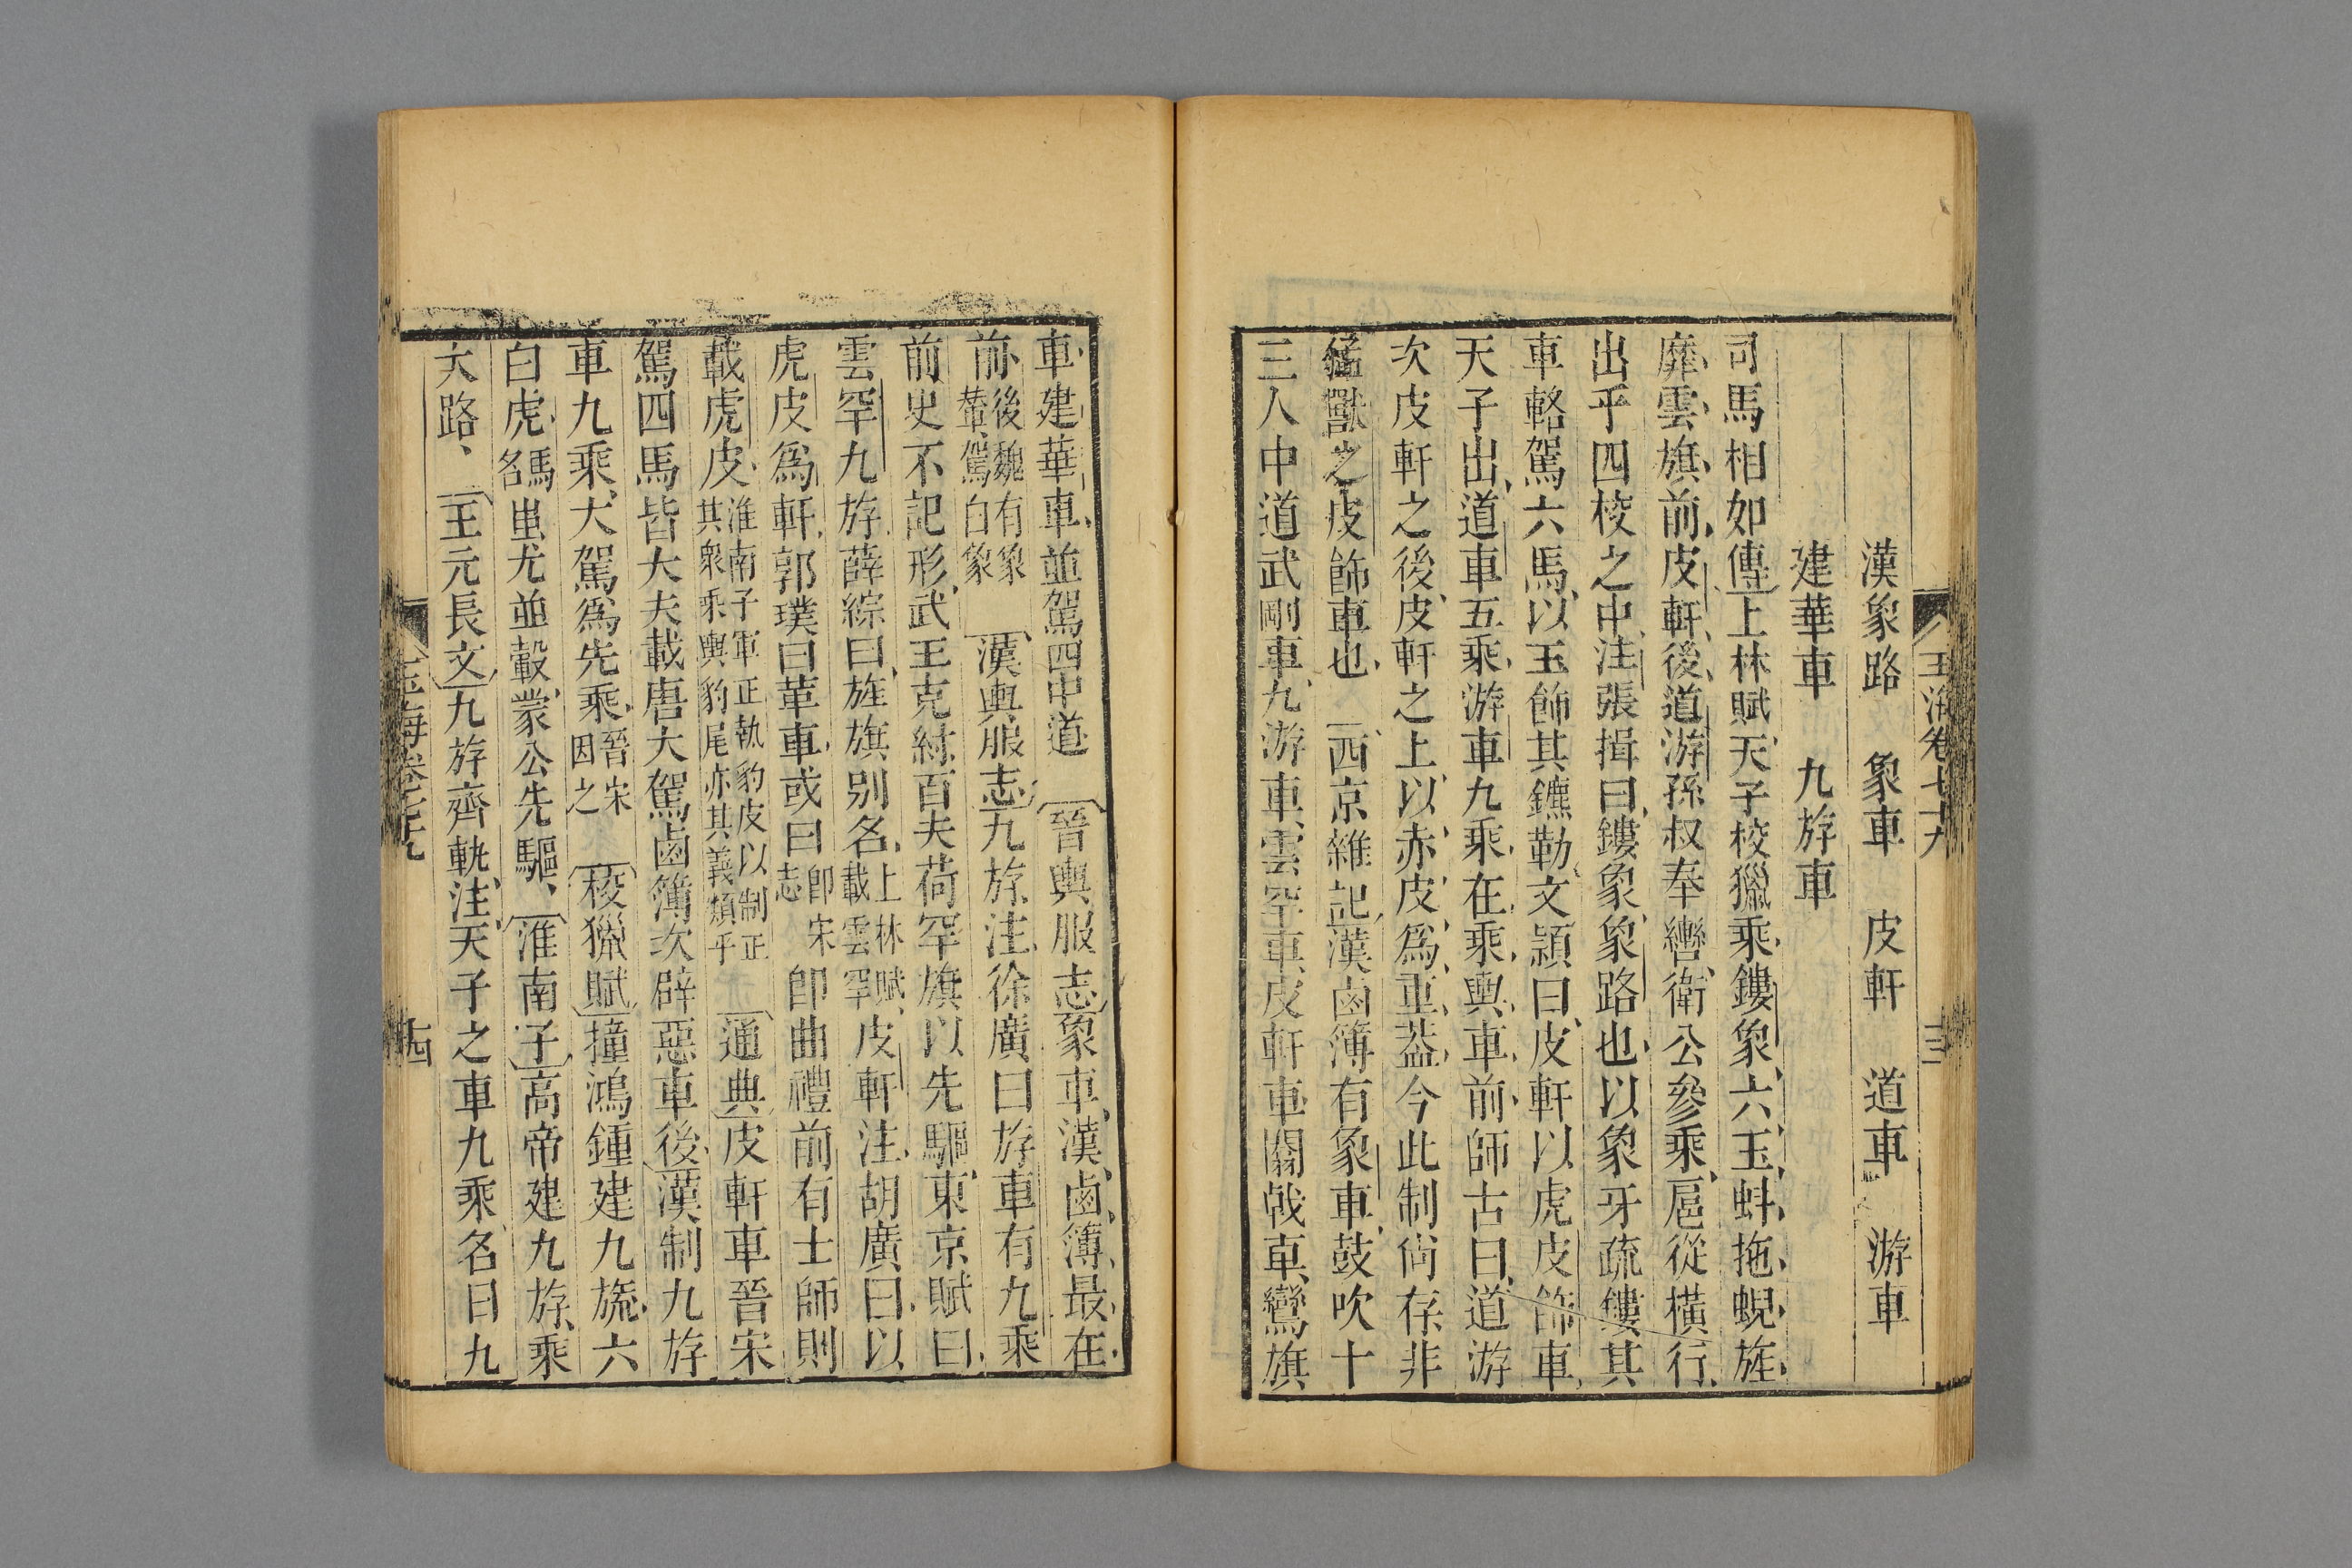 玉海卷七十九
漢象路 象車 皮軒 道車 游車
建華車 九斿車
司馬相如傳上林賦天子校獵乘鏤象六玉虯拖蜺旌
靡雲旗前皮軒後道游孫叔奉轡衛公參乘扈從橫行
出乎四校之中注張揖曰鏤象象路也以象牙疏鏤其
車輅駕六馬以玉飾其鑣勒文潁曰皮軒以虎皮飾車
天子出道車五乘游車九乘在乘輿車前師古曰道游
次皮軒之後皮軒之上以赤皮爲重蓋今此制尚存非
猛獸之皮飾車也 西京雜記漢鹵簿有象車鼓吹十
三人中道武剛車九游車雲罕車皮軒車闟戟車鸞旗
車建華車並駕四中道 晉輿服志象車漢鹵簿最在
前後魏有象輦駕白象 漢輿服志九斿注徐廣曰斿車有九乘
前史不記形武王克紂百夫荷罕旗以先驅東京賦曰
雲罕九斿薛綜曰旌旗别名上林賦載雲罕皮軒注胡廣曰以
虎皮爲軒郭璞曰革車或曰卽宋志卽曲禮前有士師則
載虎皮淮南子軍正執豹皮以制正其衆乘輿豹尾亦其義類乎 通典皮軒車晉宋
駕四馬皆大夫載唐大駕鹵簿次辟惡車後漢制九斿
車九乘大駕爲先乘晉宋因之 校獵賦撞鴻鍾建九旒六
白虎馬名蚩尤並轂蒙公先驅 淮南子高帝建九斿乘
大路 王元長文九斿齊軌注天子之車九乘名曰九
玉海卷七十九
十四